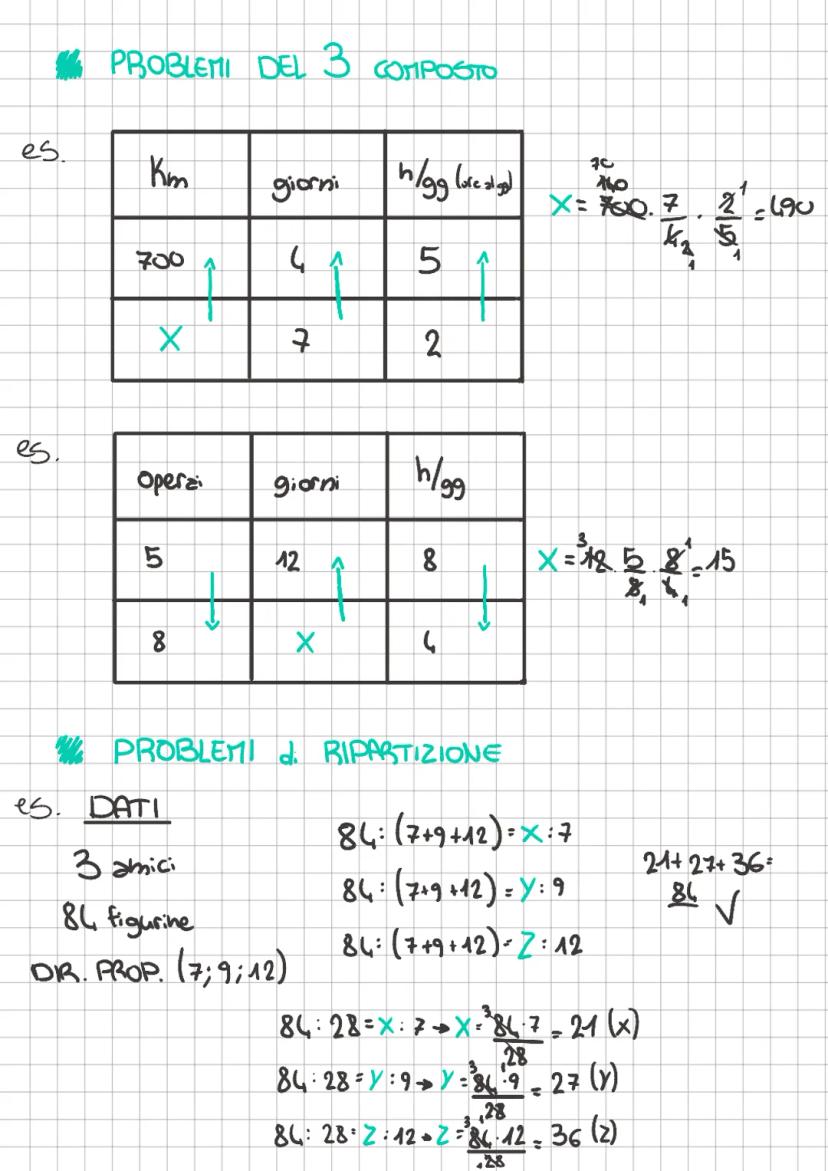 PROBLEMI DEL 3 COMPOSTO
es.
Km giorni h/gg (ore al gg)
700 4 5
X 7 2
70
140
X = 700 · 7/4 2 1 · 2 1/5 1 = 490
es.
operai giorni h/gg
5 12 8
8 X 4
X = 3 12 · 5/8 1 · 8 1/4 1 = 15
PROBLEMI di RIPARTIZIONE
es. DATI
3 amici
84 figurine
DIR. PROP. (7; 9; 12)
84 : (7+9+12) = X : 7
84 : (7+9+12) = Y : 9
84 : (7+9+12) = Z : 12
21 + 27 + 36 =
84 ✓
84 : 28 = X : 7 → X = 3 84 · 7/28 = 21 (x)
84 : 28 = Y : 9 → Y = 3 84 · 9/1 28 = 27 (Y)
84 : 28 = Z : 12 → Z = 3 84 · 12/1 28 = 36 (Z)